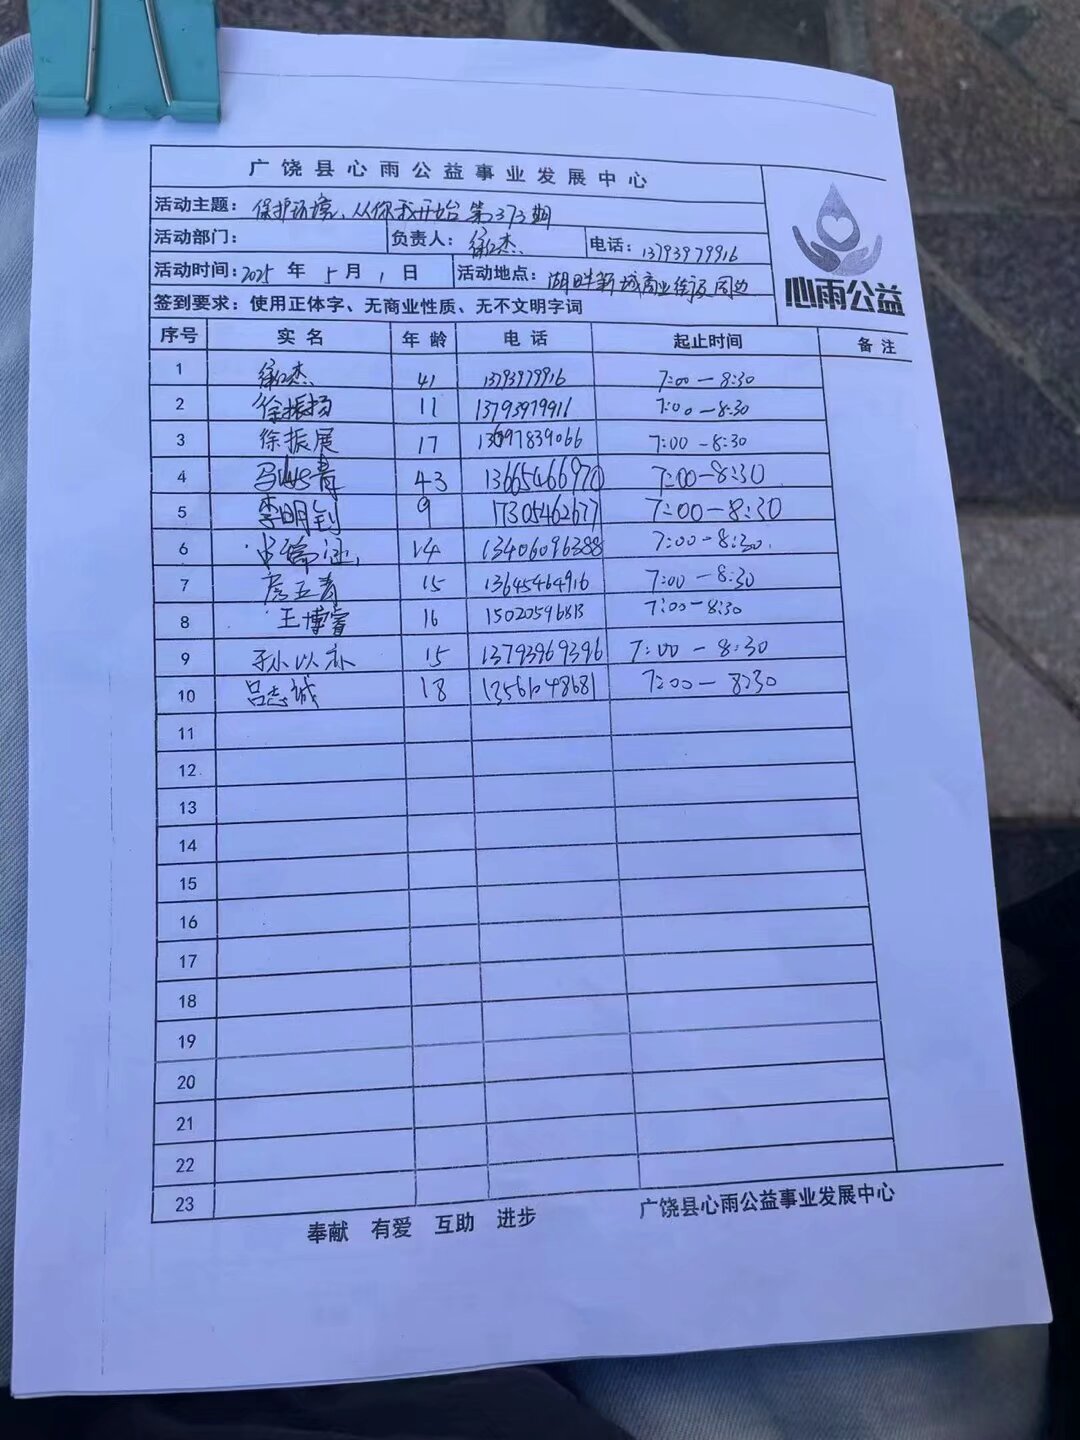 广饶县心雨公益事业发展中心
活动主题：保护环境、从你我开始 第373期
活动部门： 负责人：徐江杰 电话：13793979916
活动时间：2025 年 5 月 1 日 活动地点：湖畔新城商业街及周边
签到要求：使用正体字、无商业性质、无不文明字词
心雨公益
序号 实 名 年 龄 电 话 起止时间 备 注
1 徐江杰 41 13793979916 7:00—8:30
2 徐振扬 11 13793979916 7:00—8:30
3 徐振展 17 7:00—8:30
4 43 13665466970 7:00—8:30
5 李明钊 9 17305462677 7:00—8:30
6 14 13406096388 7:00—8:30.
7 15 13645464916 7:00—8:30
8 王博睿 16 7:00—8:30
9 15 13793969396 7:00—8:30
10 吕志诚 18 13561048681 7:00—8:30
11
12
13
14
15
16
17
18
19
20
21
22
23
奉献 有爱 互助 进步 广饶县心雨公益事业发展中心